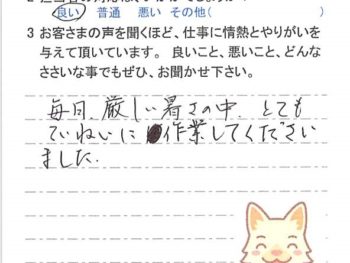 良い 普通 悪い その他( )
3 お客さまの声を聞くほど、仕事に情熱とやりがいを
与えて頂いています。良いこと、悪いこと、どんな
ささいな事でもぜひ、お聞かせ下さい。
毎日、厳しい暑さの中、とても
ていねいに作業してください
ました.